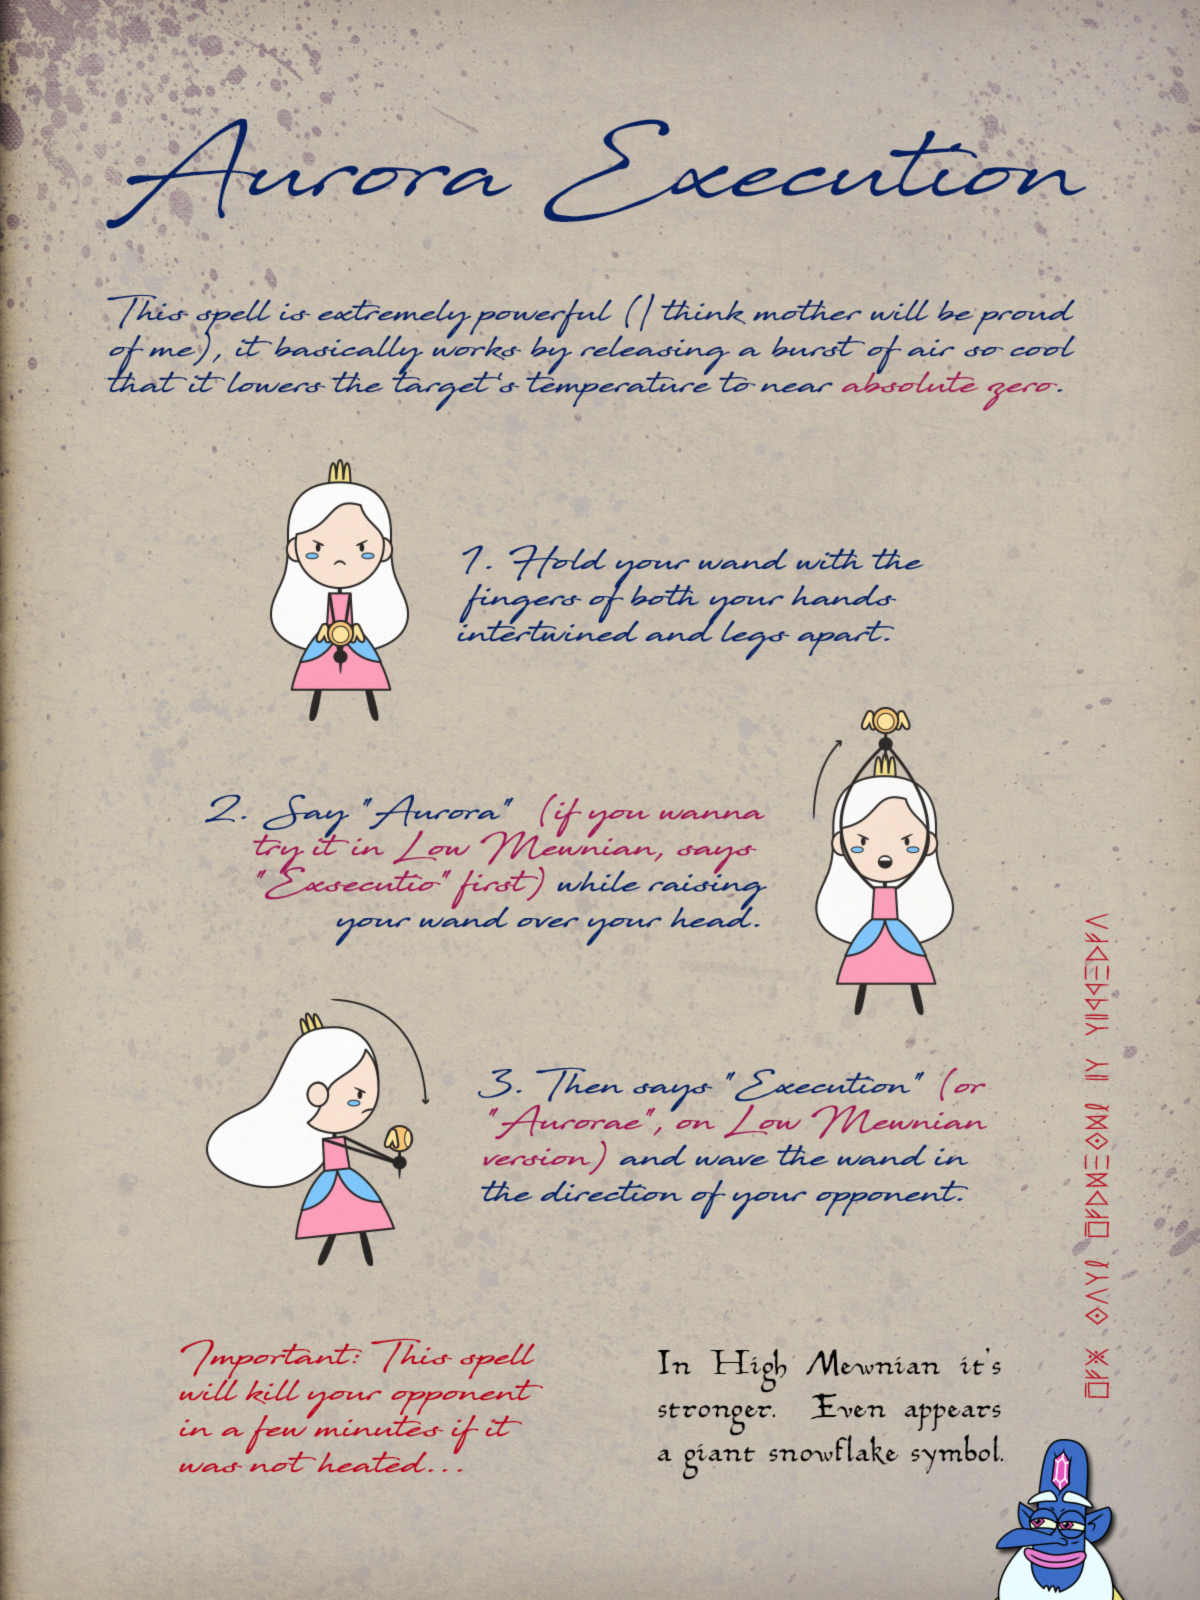 Aurora Execution
This spell is extremely powerful (I think mother will be proud
of me), it basically works by releasing a burst of air so cool
that it lowers the target's temperature to near absolute zero.
1. Hold your wand with the
fingers of both your hands
intertwined and legs apart.
2. Say "Aurora" (if you wanna
try it in Low Mewnian, says
"Exsecutio" first) while raising
your wand over your head.
3. Then says "Execution" (or
"Aurorae", on Low Mewnian
version) and wave the wand in
the direction of your opponent.
Important: This spell
will kill your opponent
in a few minutes if it
was not heated...
In High Mewnian it's
stronger. Even appears
a giant snowflake symbol.